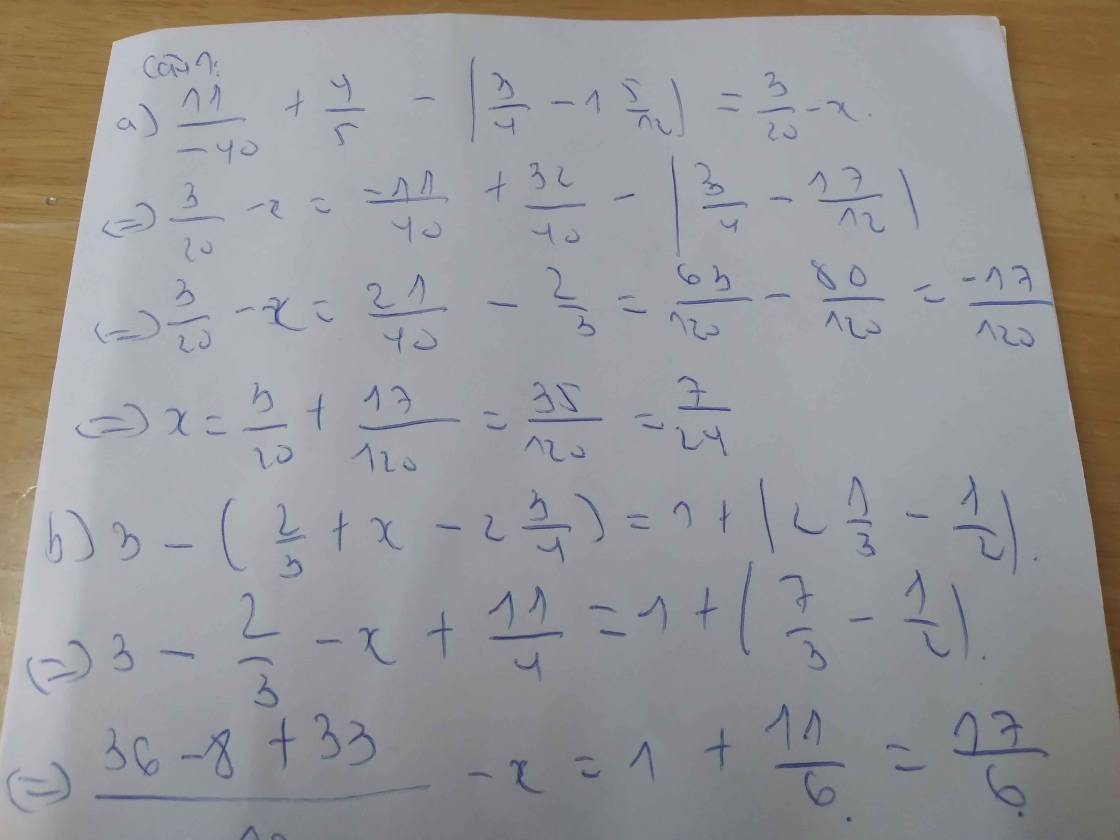 Câu 1:
a) 11/-40 + 4/5 - |3/4 - 1 5/12| = 3/20 - x.
(=) 3/20 - x = -11/40 + 32/40 - |3/4 - 17/12|
(=) 3/20 - x = 21/40 - 2/3 = 63/120 - 80/120 = -17/120
(=) x = 3/20 + 17/120 = 35/120 = 7/24
b) 3 - (2/3 + x - 2 3/4) = 1 + |2 1/3 - 1/2|.
(=) 3 - 2/3 - x + 11/4 = 1 + (7/3 - 1/2).
(=) 36 - 8 + 33/12 - x = 1 + 11/6 = 17/6.